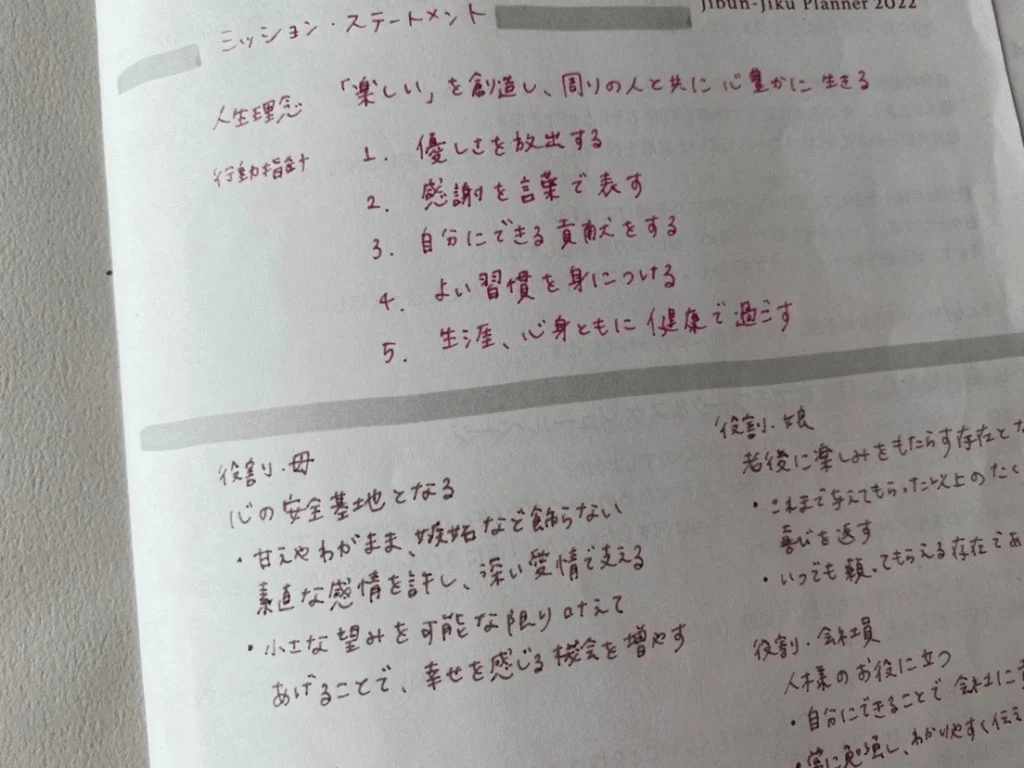 Jibun-Jiku Planner 2022
ミッション・ステートメント
人生理念 「楽しい」を創造し、周りの人と共に心豊かに生きる
行動指針 1. 優しさを放出する
2. 感謝を言葉で表す
3. 自分にできる貢献をする
4. よい習慣を身につける
5. 生涯、心身ともに健康で過ごす
役割・母
心の安全基地となる
・甘えやわがまま、嫉妬など飾らない
素直な感情を許し、深い愛情で支える
・小さな望みを可能な限り叶えて
あげることで、幸せを感じる機会を増やす
役割・娘
老後に楽しみをもたらす存在とな
・これまで与えてもらった以上のたく
喜びを返す
・いつでも頼ってもらえる存在であ
役割・会社員
人様のお役に立つ
・自分にできることで会社に
・常に勉強し、わかりやすく伝え